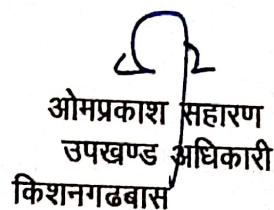 ओमप्रकाश सहारण
उपखण्ड अधिकारी
किशनगढबास